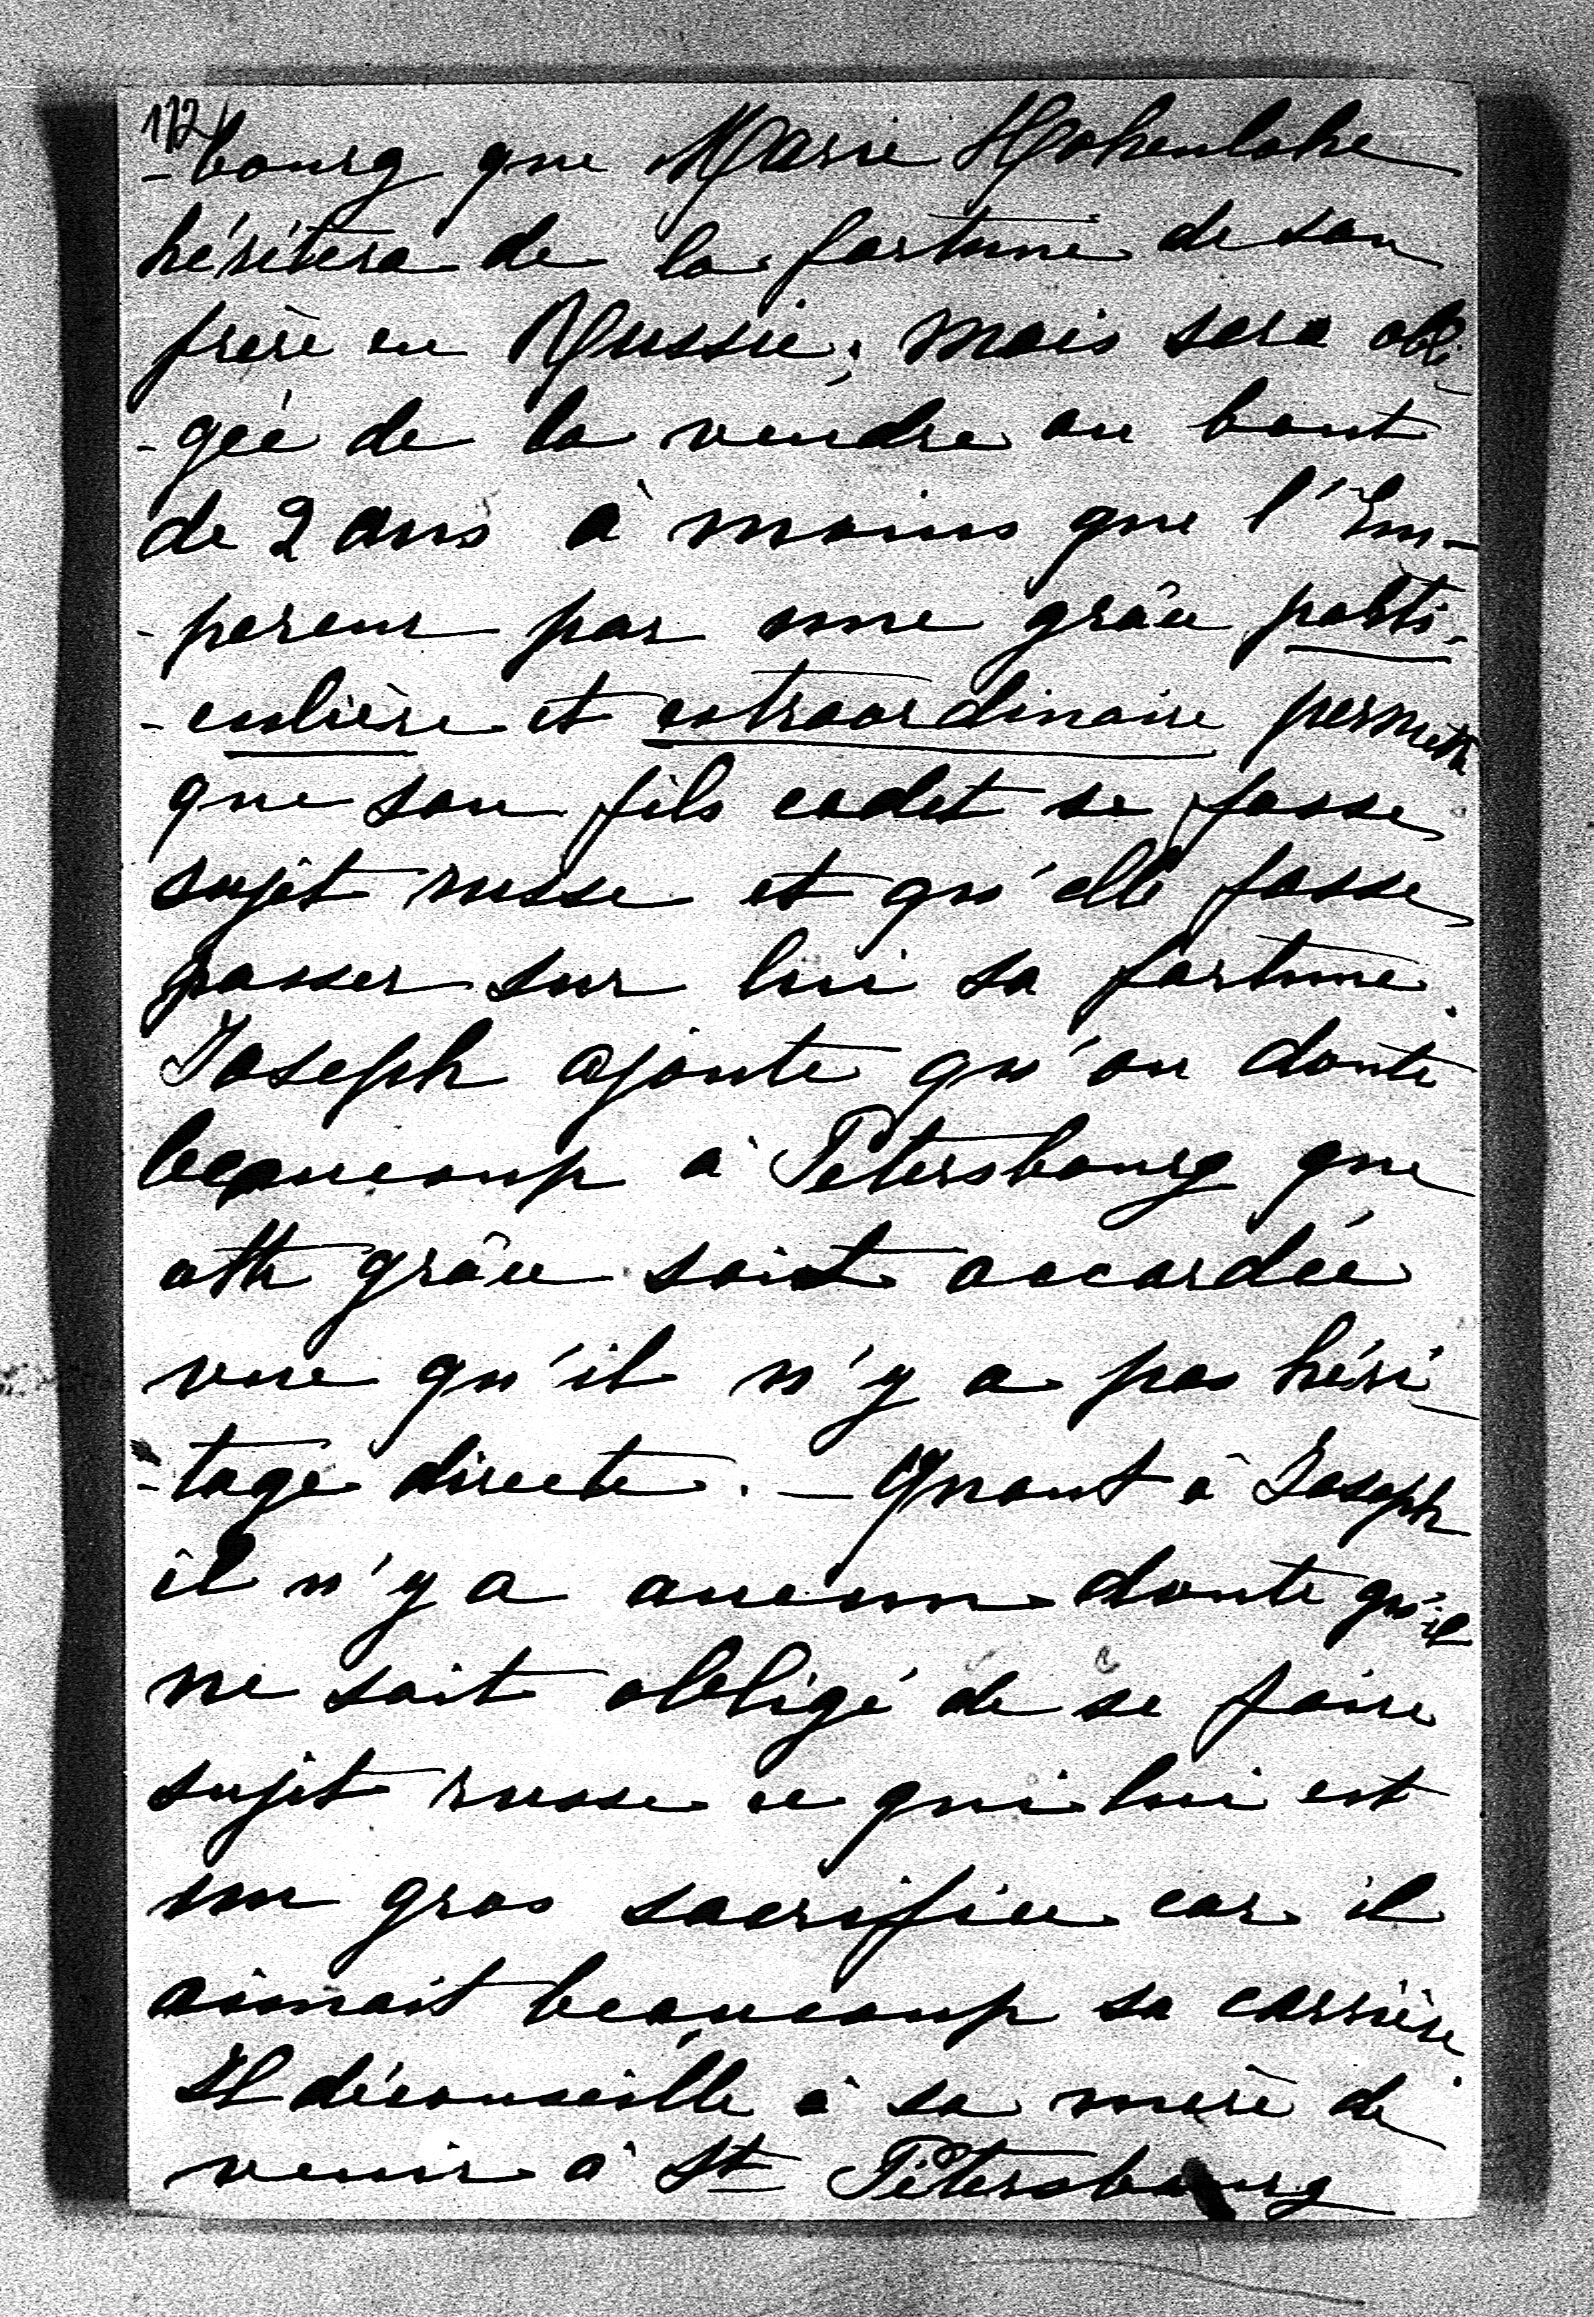 172
-bourg que Marie Hohenlohe
héritera de la fortune de son
frère en Russie, mais sera obli-
-gée de la vendre au bout
de 2 ans à moins que l'Em-
-pereur par une grâce parti-
-culière et extraordinaire permette
que son fils cadet se fasse
sujet russe et qu'elle fasse
passer sur lui sa fortune.
Joseph ajoute qu'on doute
beaucoup à Pétersbourg que
cette grâce soit accordée
vue qu'il n'y a pas héri-
-tage directe. — Quant à Joseph
il n'y a aucun doute qu'il
ne soit obligé de se faire
sujet russe ce qui lui est
un gros sacrifice car il
aimait beaucoup sa carrière.
Il déconseille à sa mère de
venir à St Pétersbourg